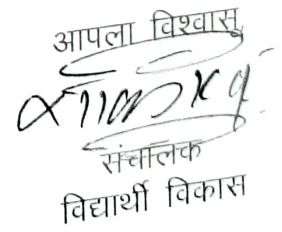 आपला विश्वासू
संचालक
विद्यार्थी विकास